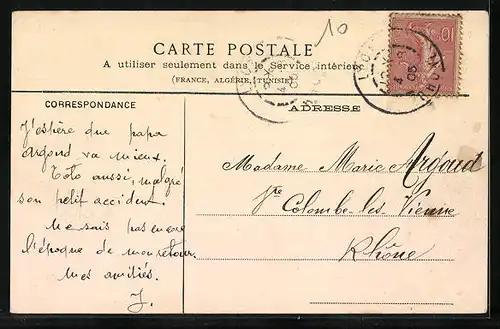 10
CARTE POSTALE
A utiliser seulement dans le Service intérieur
(FRANCE, ALGÉRIE, TUNISIE)
CORRESPONDANCE
ADRESSE
J'espère que papa
Argoud va mieux.
Toto aussi, malgré
son petit accident.
Ne sais pas encore
l'époque de mon retour.
Mes amitiés.
J.
Madame Marie Argoud
Ste Colombe-les-Vienne
Rhône